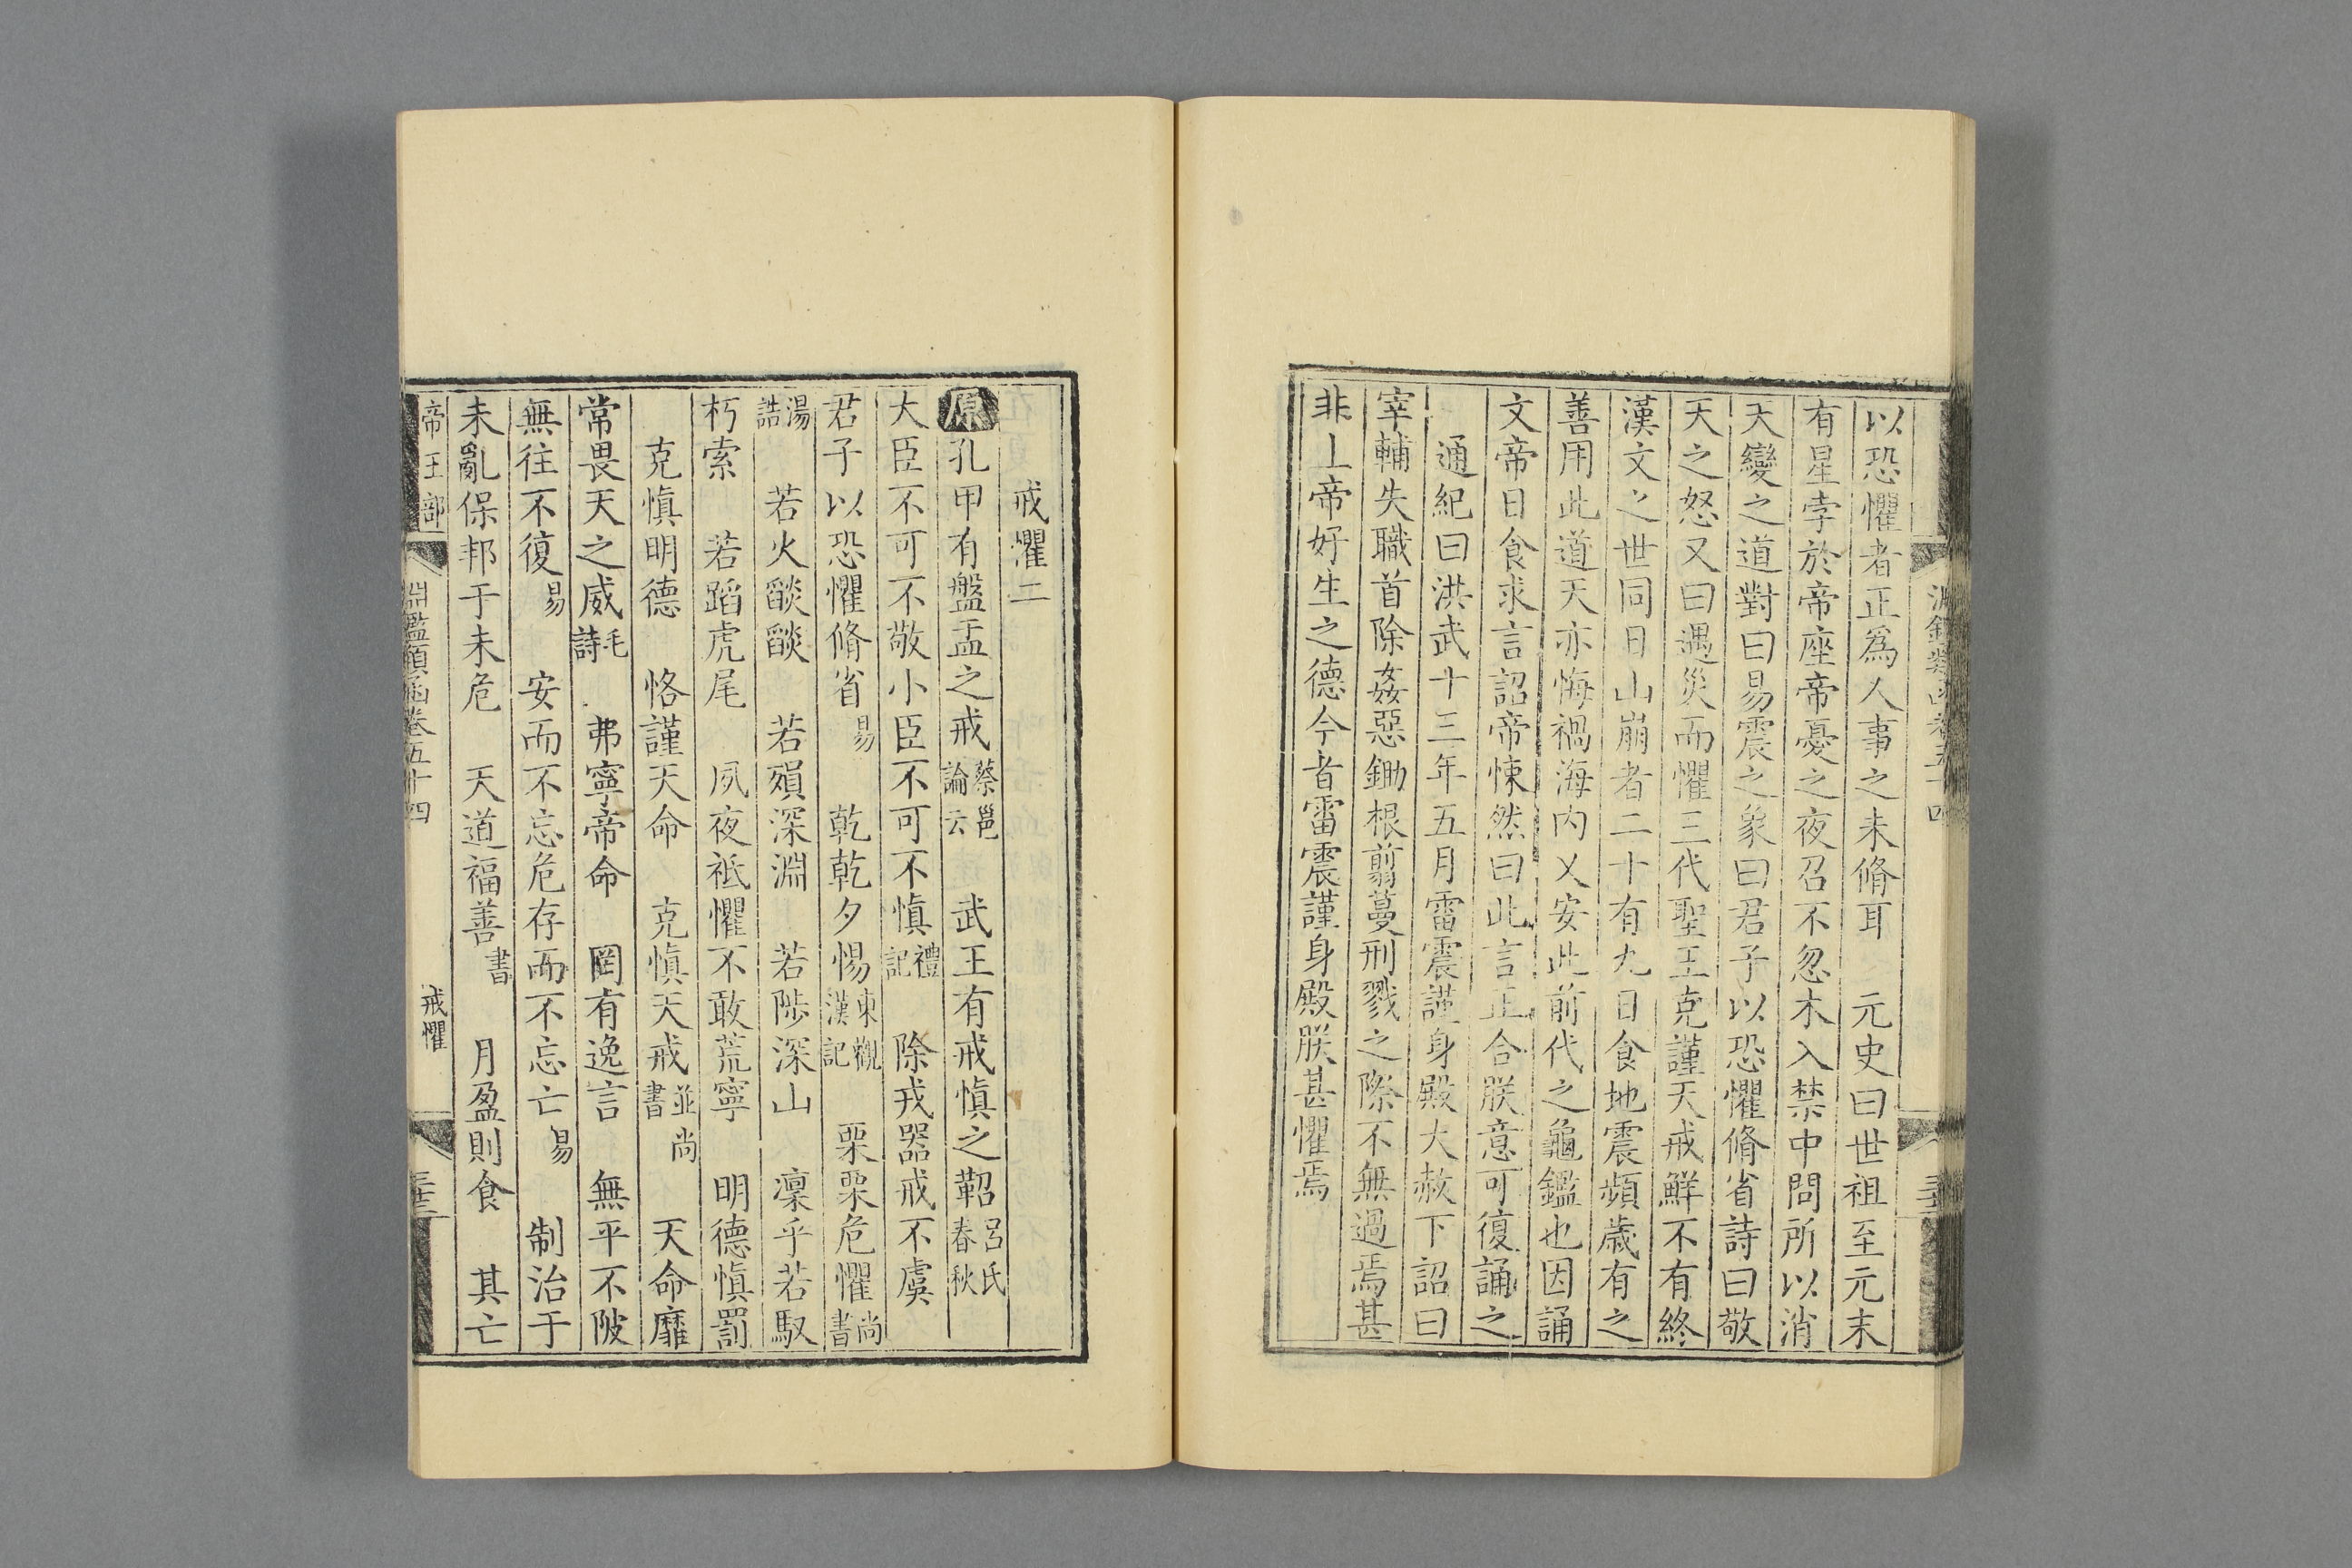 以恐懼者正為人事之未脩耳　元史曰世祖至元末
有星孛於帝座帝憂之夜召不忽木入禁中問所以消
天變之道對曰易震之象曰君子以恐懼脩省詩曰敬
天之怒又曰遇災而懼三代聖王克謹天戒鮮不有終
漢文之世同日山崩者二十有九日食地震頻歲有之
善用此道天亦悔禍海内乂安此前代之龜鑑也因誦
文帝日食求言詔帝悚然曰此言正合朕意可復誦之
通紀曰洪武十三年五月雷震謹身殿大赦下詔曰
宰輔失職首除姦惡鋤根翦蔓刑戮之際不無過焉甚
非上帝好生之德今者雷震謹身殿朕甚懼焉
戒懼二
原孔甲有盤盂之戒蔡邕論云　武王有戒慎之鞀呂氏春秋
大臣不可不敬小臣不可不慎禮記　除戎器戒不虞
君子以恐懼脩省易　乾乾夕惕東觀漢記　栗栗危懼尚書
湯誥　若火燄燄　若殞深淵　若陟深山　凜乎若馭
朽索　若蹈虎尾　夙夜祗懼不敢荒寧　明德慎罰
克慎明德　恪謹天命　克慎天戒並尚書　天命靡
常畏天之威毛詩　弗寧帝命　罔有逸言　無平不陂
無往不復易　安而不忘危存而不忘亡易　制治于
未亂保邦于未危　天道福善書　月盈則食　其亡
帝王部　淵鑑類函卷五十四　戒懼